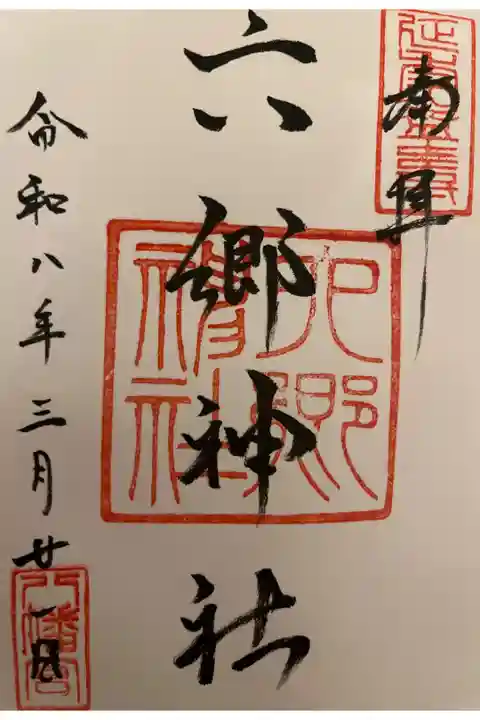 奉拝
六郷神社
令和八年三月廿一日
六郷神社
八幡宮